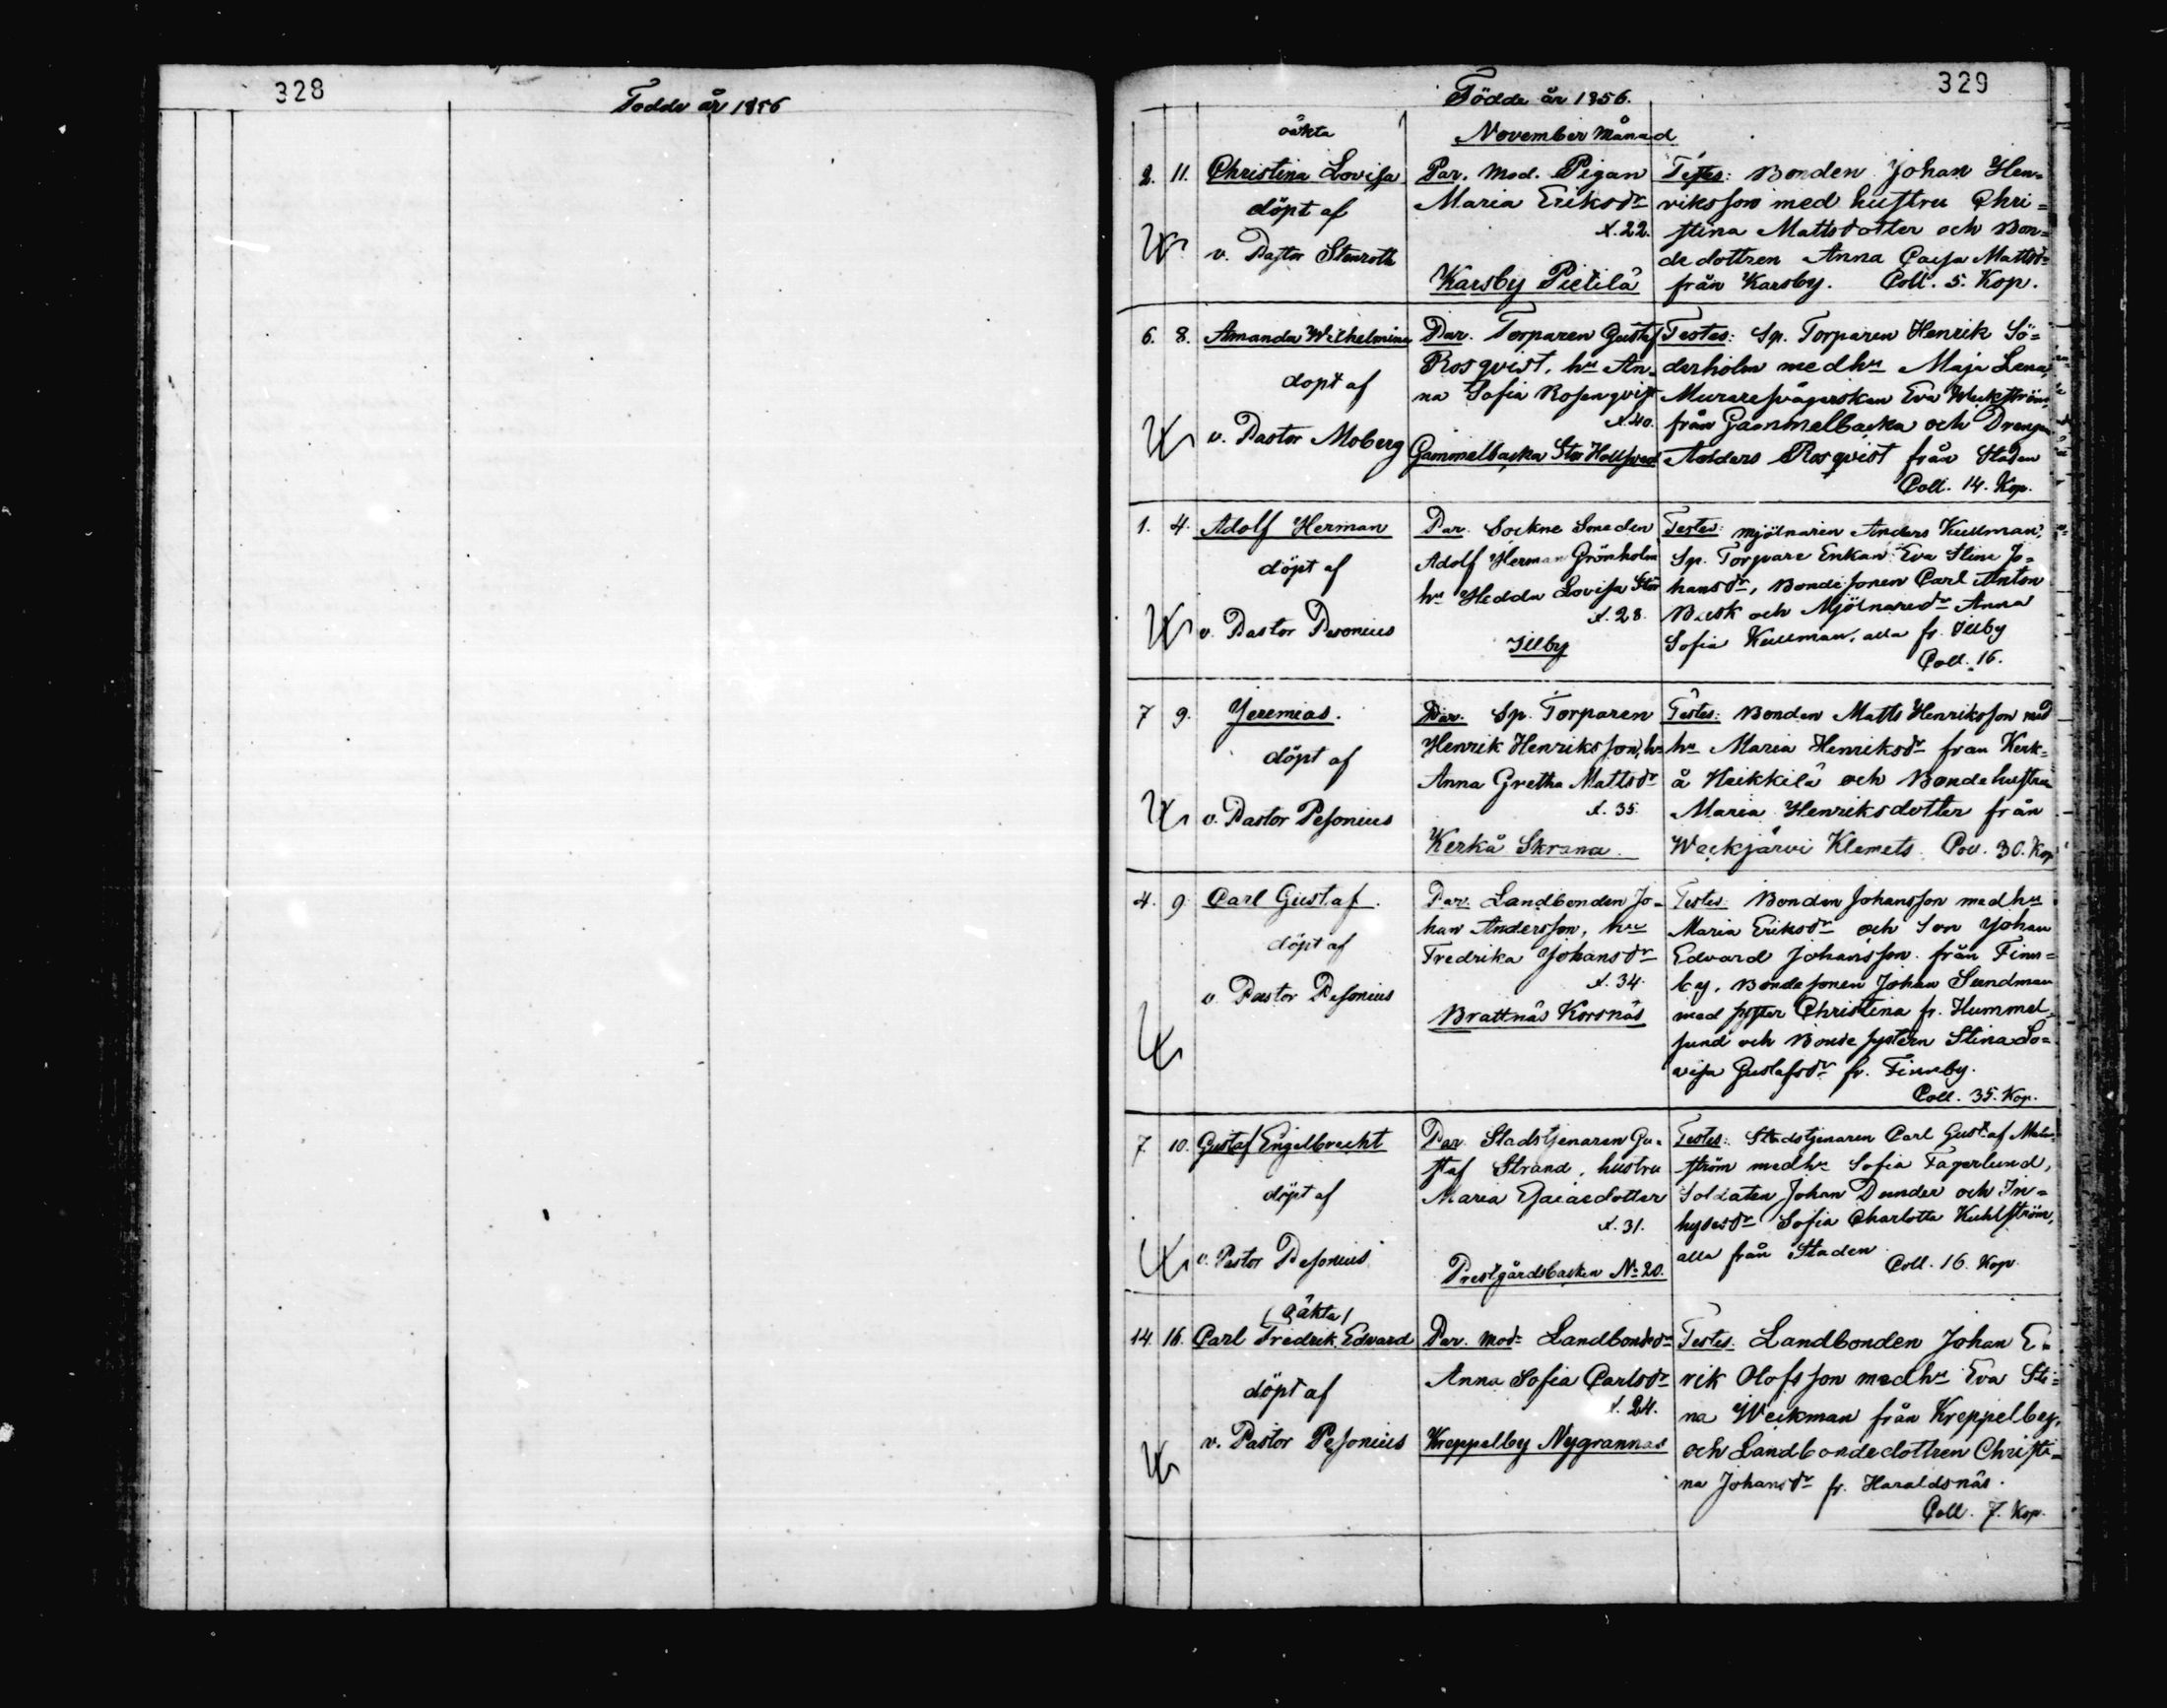 328
Födde år 1856
329
Födde år 1856.
oäkta
November Månad
2. 11. Christina Lovisa
döpt af
v. Pastor Stenroth
Par. Mod. Pigan
Maria Eriksdr
Å. 22.
Karsby Pietilä
Testes: Bonden Johan Hen=
riksson med hustru Chri=
stina Mattsdotter och Bon=
de dottren Anna Caisa Mattsdr
från Karsby. Coll. 5. Kop.
6. 8. Amanda Wilhelmina
döpt af
v. Pastor Moberg
Par. Torparen Gustaf
Rosqvist, hu An=
na Sofia Rosenqvist
Å. 40.
Gammelbacka Stor
Testes: Sp. Torparen Henrik Sö=
derholm med hu Maja Lena,
Eva
från Gammelbacka och Drengen
Anders Rosqvist från Staden
Coll. 14. Kop.
1. 4. Adolf Herman
döpt af
v. Pastor Pesonius
Par. Sockne Smeden
Adolf Herman Grönholm
hu Hedda Lovisa Stör
Å. 28.
Illby
Testes: Mjölnaren Anders Kullman,
Sp. Torpare Enkan Eva Stina Jo=
hansdr, Bondesonen Carl Anton
Busk och Mjölnaredr Anna
Sofia Kullman, alla fr. Illby
Coll. 16.
7 9. Jeremias.
döpt af
v. Pastor Pesonius
Par. Sp. Torparen
Henrik Henriksson, hu
Anna Gretha Mattsdr
Å. 35.
Kerkå Skrana.
Testes: Bonden Matts Henriksson med
hu Maria Henriksdr från Kerk=
å Heikkilä och Bondehustrun
Maria Henriksdotter från
Wäckjärvi Klemets. Coll. 30. Kop
4. 9 Carl Gustaf.
döpt af
v. Pastor Pesonius
Par. Landbonden Jo=
han Andersson, hu
Fredrika Johansdr
Å. 34.
Brattnäs Korsnäs
Testes: Bonden Johansson med hu
Maria Eriksdr och Son Johan
Edvard Johansson från Finn=
by, Bondesonen Johan Sundman
med syster Christina fr. Hummel=
sund och Bonde systern Stina Lo=
visa Gustafsdr fr. Finnby.
Coll. 35. Kop.
7. 10. Gustaf Engelbrecht
döpt af
v. Pastor Pesonius
Par. Stadstjenaren Gu=
staf Strand, hustru
Maria Esaiasdotter
Å. 31.
Prestgårdsbacken No 20.
Testes: Stadstjenaren Carl Gustaf Malm=
ström med hu Sofia Fagerlund,
Soldaten Johan Dunder och In=
hysesdr Sofia Charlotta Kuhlström,
alla från Staden
Coll. 16. Kop.
(Oäkta)
14. 16. Carl Fredrik Edvard
döpt af
v. Pastor Pesonius
Par. Mod= Landbondedr
Anna Sofia Carlsdr
Å. 24.
Kreppelby Nygrannas
Testes: Landbonden Johan E=
rik Olofsson med hu Eva Sti=
na Weckman från Kreppelby,
och Landbondedottren Christi=
na Johansdr fr. Haraldsnäs.
Coll. 7. Kop.